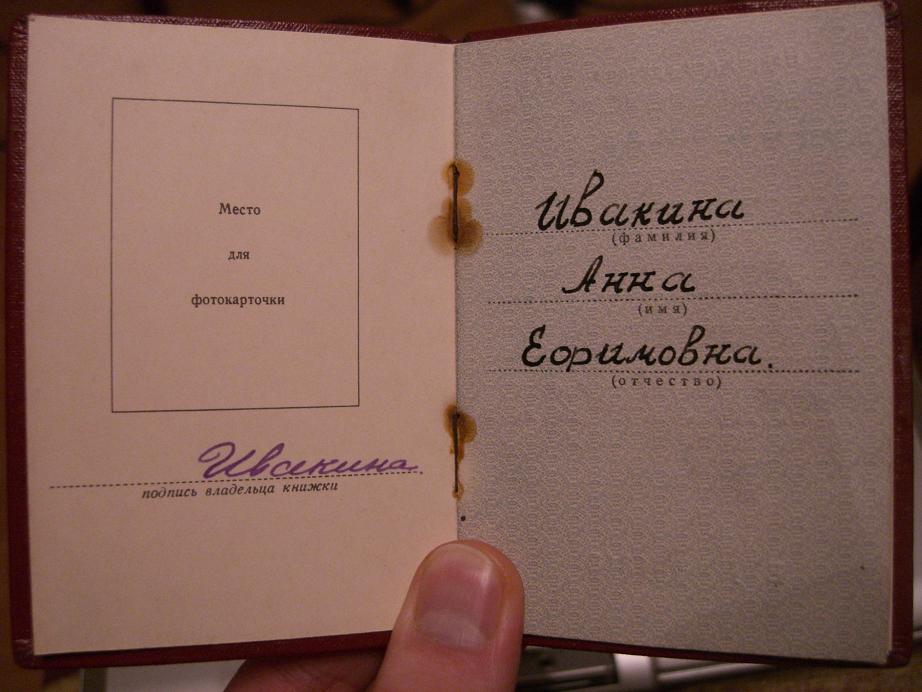 Место
для
фотокарточки
Ивакина.
подпись владельца книжки
Ивакина
(фамилия)
Анна
(имя)
Ефримовна.
(отчество)